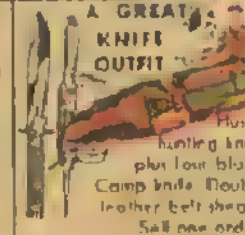 A GREAT
KNIFE
OUTFIT
hunting kn
plus four bl
Camp knife
leather belt shea
Sell one ord